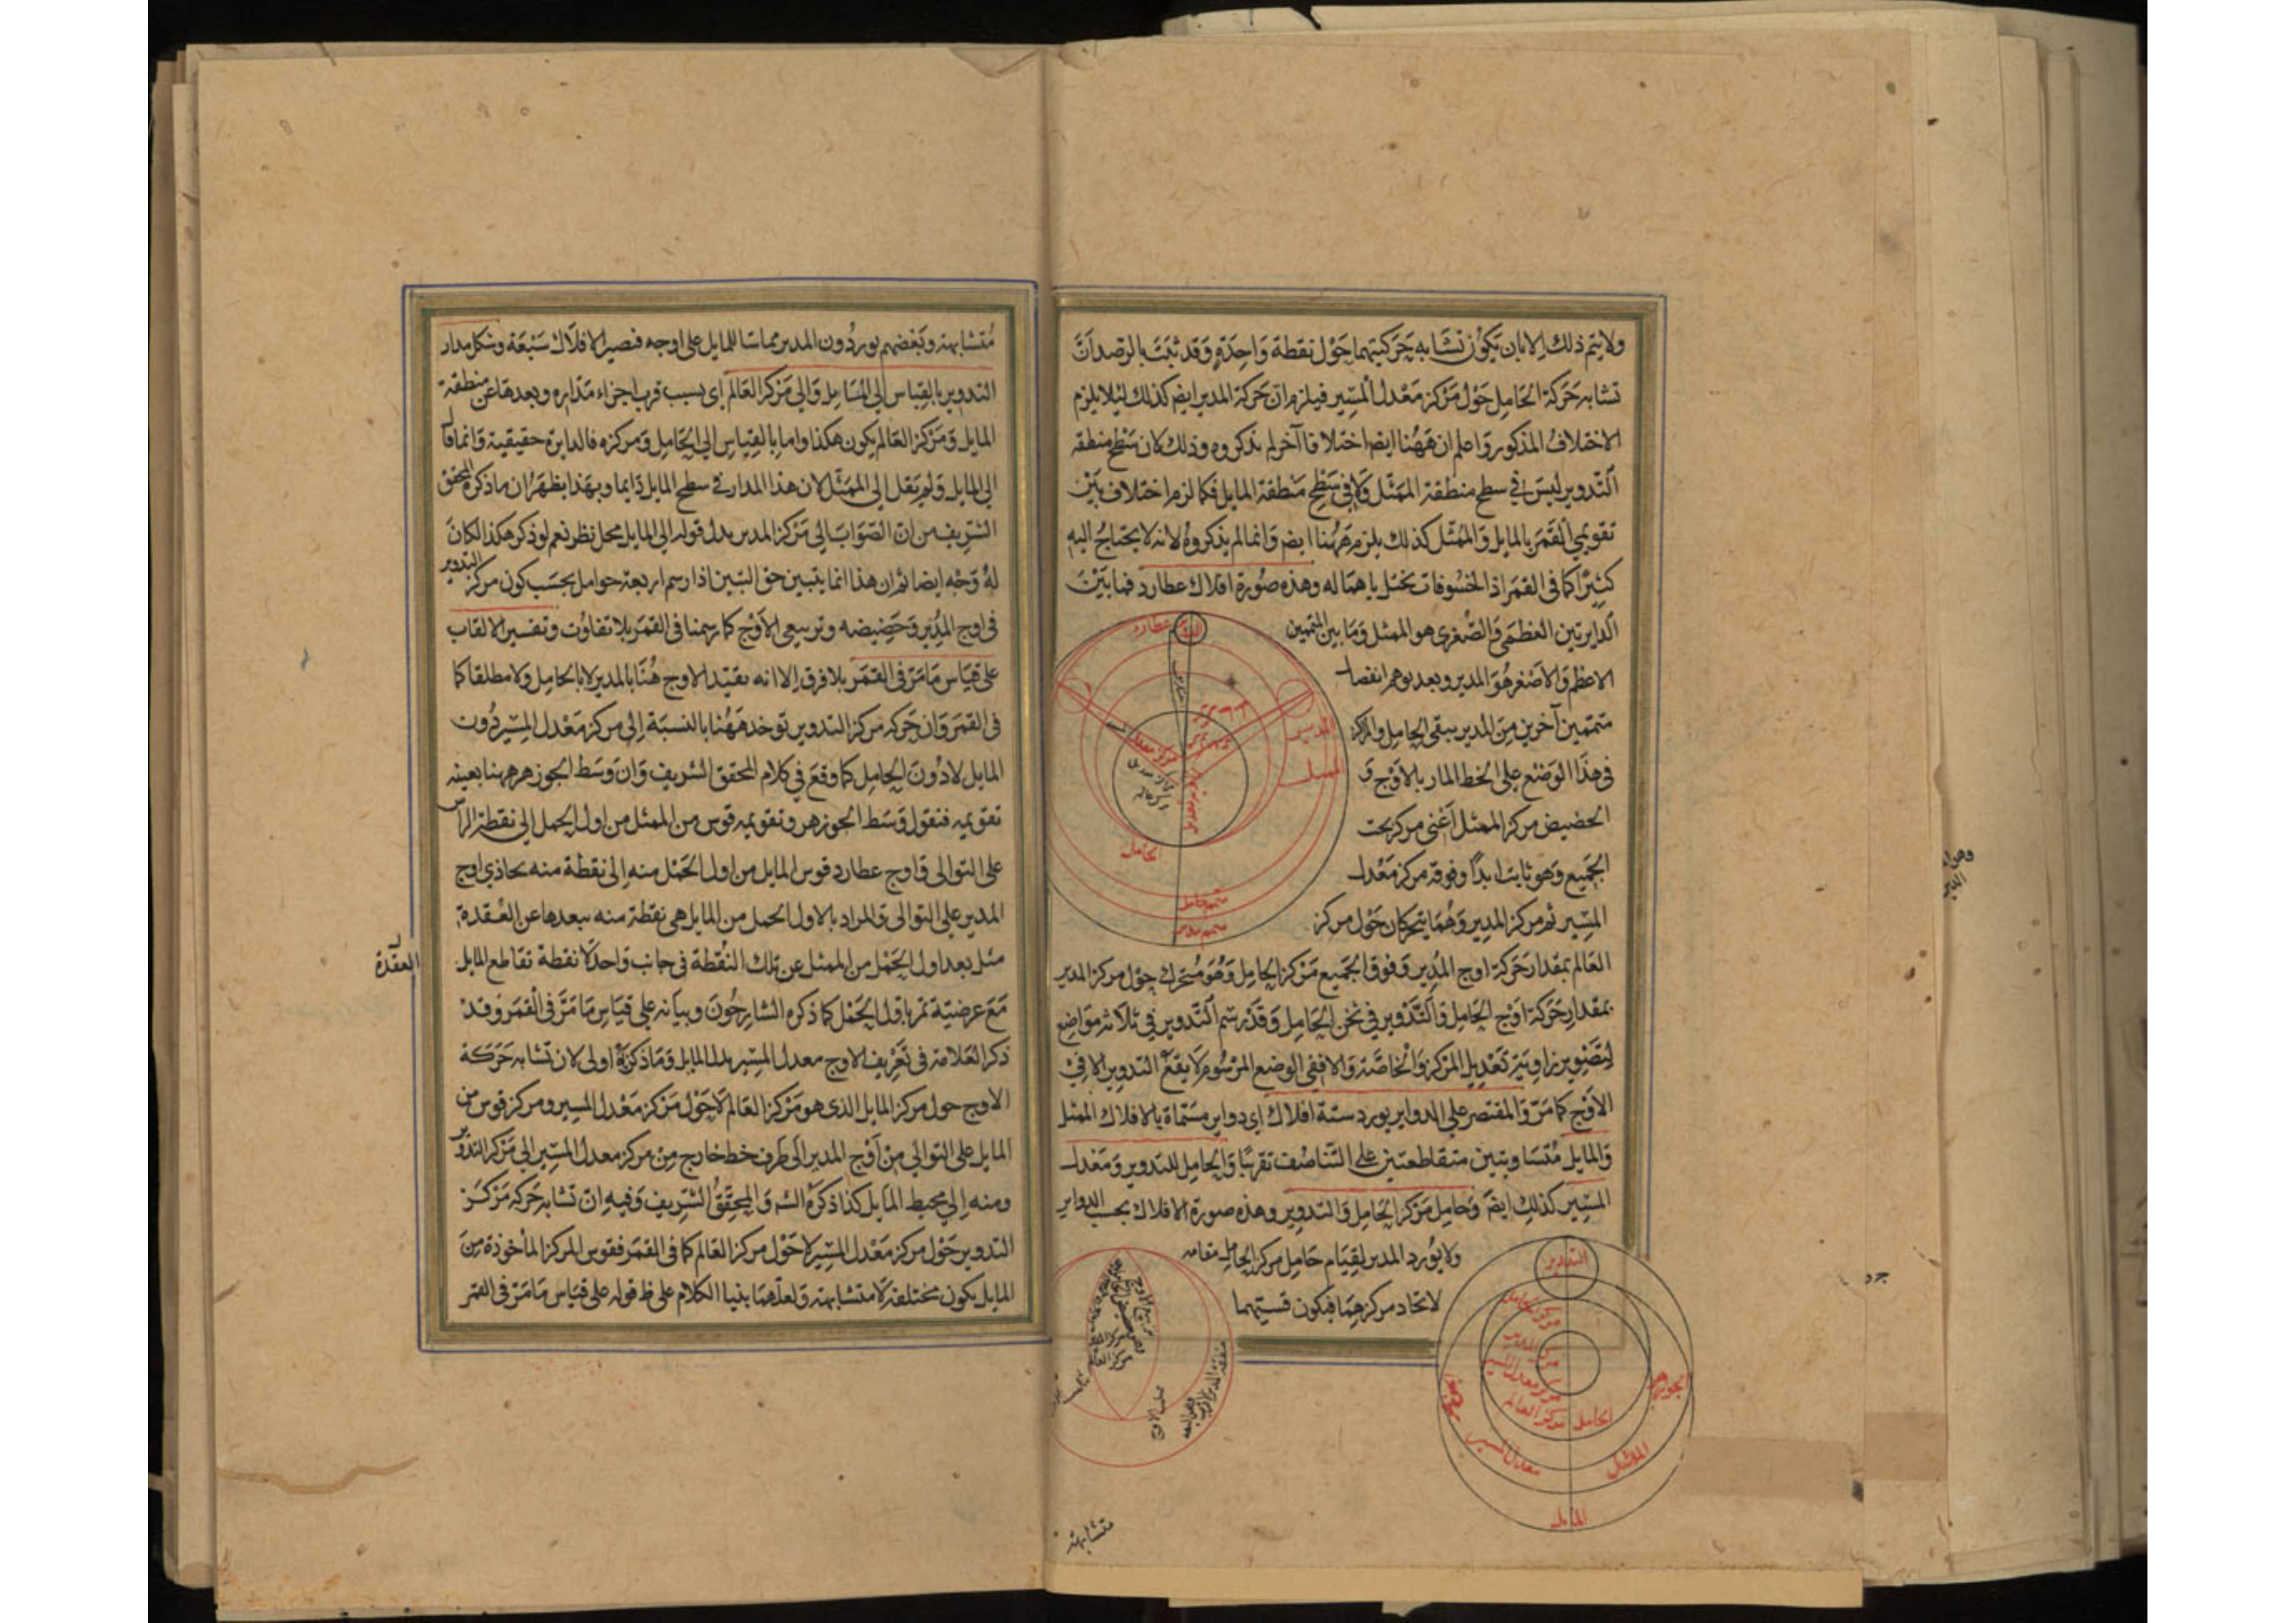 ولا يتم ذلك الا بان يكون تشابه حركتيهما حول نقطة واحدة وقد ثبت بالرصد ان
تشابه حركة الحامل حول مركز معدل المسير فيلزم ان حركة المدير ايضم كذلك ليلا يلزم
الاختلاف المذكور واعلم ان ههنا ايضا اختلافا آخر لم يذكروه وذلك كان سطح منطقة
التدوير ليس في سطح منطقة الممثل ولا في سطح منطقة المايل فكما لزم اختلاف بين
تقويمي القمر بالمايل والممثل كذلك يلزم ههنا ايضم وانما لم يذكروه لانه لا يحتاج اليه
كثيرا كما في القمر اذ الخسوفات تختل باهماله وهذه صورة افلاك عطارد فما بين
الدايرتين العظمى والصغرى هو الممثل وما بين المتممين
الاعظم والاصغر هو المدير وبعد توهم انفصال
متممين آخرين من المدير يبقى الحامل والمراكز
في هذا الوضع على الخط المار بالاوج و
الحضيض مركز الممثل اعني مركز تحت
الجميع وهو ثابت ابدا وفوقه مركز معدل
المسير ثم مركز المدير وهما يتحركان حول مركز
العالم بمقدار حركة اوج المدير وفوق الجميع مركز الحامل وهو متحرك حول مركز المدير
بمقدار حركة اوج الحامل والتدوير في ثخن الحامل وقد رسم التدوير في ثلاثه مواضع
لتصوير زاويتي تعديل المركز والخاصة والا ففي الوضع المرسوم لا يقع التدوير الا في
الاوج كما مر والمقتصر على الدواير يورد ستة افلاك اي دواير مسماة بالافلاك الممثل
والمايل متساويتين متقاطعتين على التناصف تقريبا والحامل للتدوير ومعدل
المسير كذلك ايضم وحامل مركز الحامل والتدوير وهذه صورة الافلاك بحسب الدواير
ولا يورد المدير لقيام حامل مركز الحامل مقامه
لاتحاد مركزهما فيكون قسيتهما
متشابهة
التدوير
عطارد
المدير
الممثل
الحامل
متمم حامل
متمم مدير
التدوير
مركز الحامل
مركز المدير
مركز معدل المسير
مركز العالم
الحامل
معدل المسير
الممثل
المايل
متشابهة وبعضهم يوردون المدير مماسا للمايل على اوجه فتصير الافلاك سبعة وشكل مدار
التدوير بالقياس الى المايل والى مركز العالم اي بسبب قرب اجزاء مداره وبعدها عن منطقة
المايل ومركز العالم يكون هكذا واما بالقياس الى الحامل ومركزه فالدايرة حقيقية وانما قال
الى المايل ولم يقل الى الممثل لان هذا المدار في سطح المايل دايما وبهذا يظهر ان ما ذكره المحقق
الشريف من ان الصواب الى مركز المدير بدل قوله الى المايل محل نظر نعم لو ذكر هكذا لكان
له وجه ايضا ثم ان هذا انما يتبين حق التبين اذا رسم اربعة حوامل بحسب كون مركز التدوير
في اوج المدير وحضيضه وتربيعي الاوج كما رسمنا في القمر بلا تفاوت وتفسير الالقاب
على قياس ما مر في القمر بلا فرق الا انه يقيد الاوج هنا بالمدير لا بالحامل ولا مطلقا كما
في القمر وان حركة مركز التدوير توخد ههنا بالنسبة الى مركز معدل المسير دون
المايل لا دون الحامل كما وقع في كلام المحقق الشريف وان وسط الجوزهر ههنا بعينه
تقويمه فنقول وسط الجوزهر وتقويمه قوس من الممثل من اول الحمل الى نقطة الراس
على التوالى واوج عطارد قوس المايل من اول الحمل منه الى نقطة منه يحاذي اوج
المدير على التوالى والمراد بالاول الحمل من المايل هي نقطة منه يبعدها عن العقدة
مثل بعد اول الحمل من الممثل عن تلك النقطة في جانب واحد لا نقطة تقاطع المايل
العقدة
مع عرضية تمر باول الحمل كما ذكره الشارحون وبيانه على قياس ما مر في القمر وقد
ذكر العلامة في تعريف الاوج معدل المسير بدل المايل وما ذكره اولى لان تشابه حركة
الاوج حول مركز المايل الذى هو مركز العالم لا حول مركز معدل المسير ومركز قوس من
المايل على التوالي من اوج المدير الى طرف خط خارج من مركز معدل المسير الى مركز التدوير
ومنه الى محيط المايل كذا ذكره الشه والمحقق الشريف وفيه ان تشابه حركة مركز
التدوير حول مركز معدل المسير لا حول مركز العالم كما في القمر فقوس المركز المأخوذة من
المايل يكون مختلفة لا متشابهة ولعلهما بنيا الكلام على ظ قوله على قياس ما مر في القمر